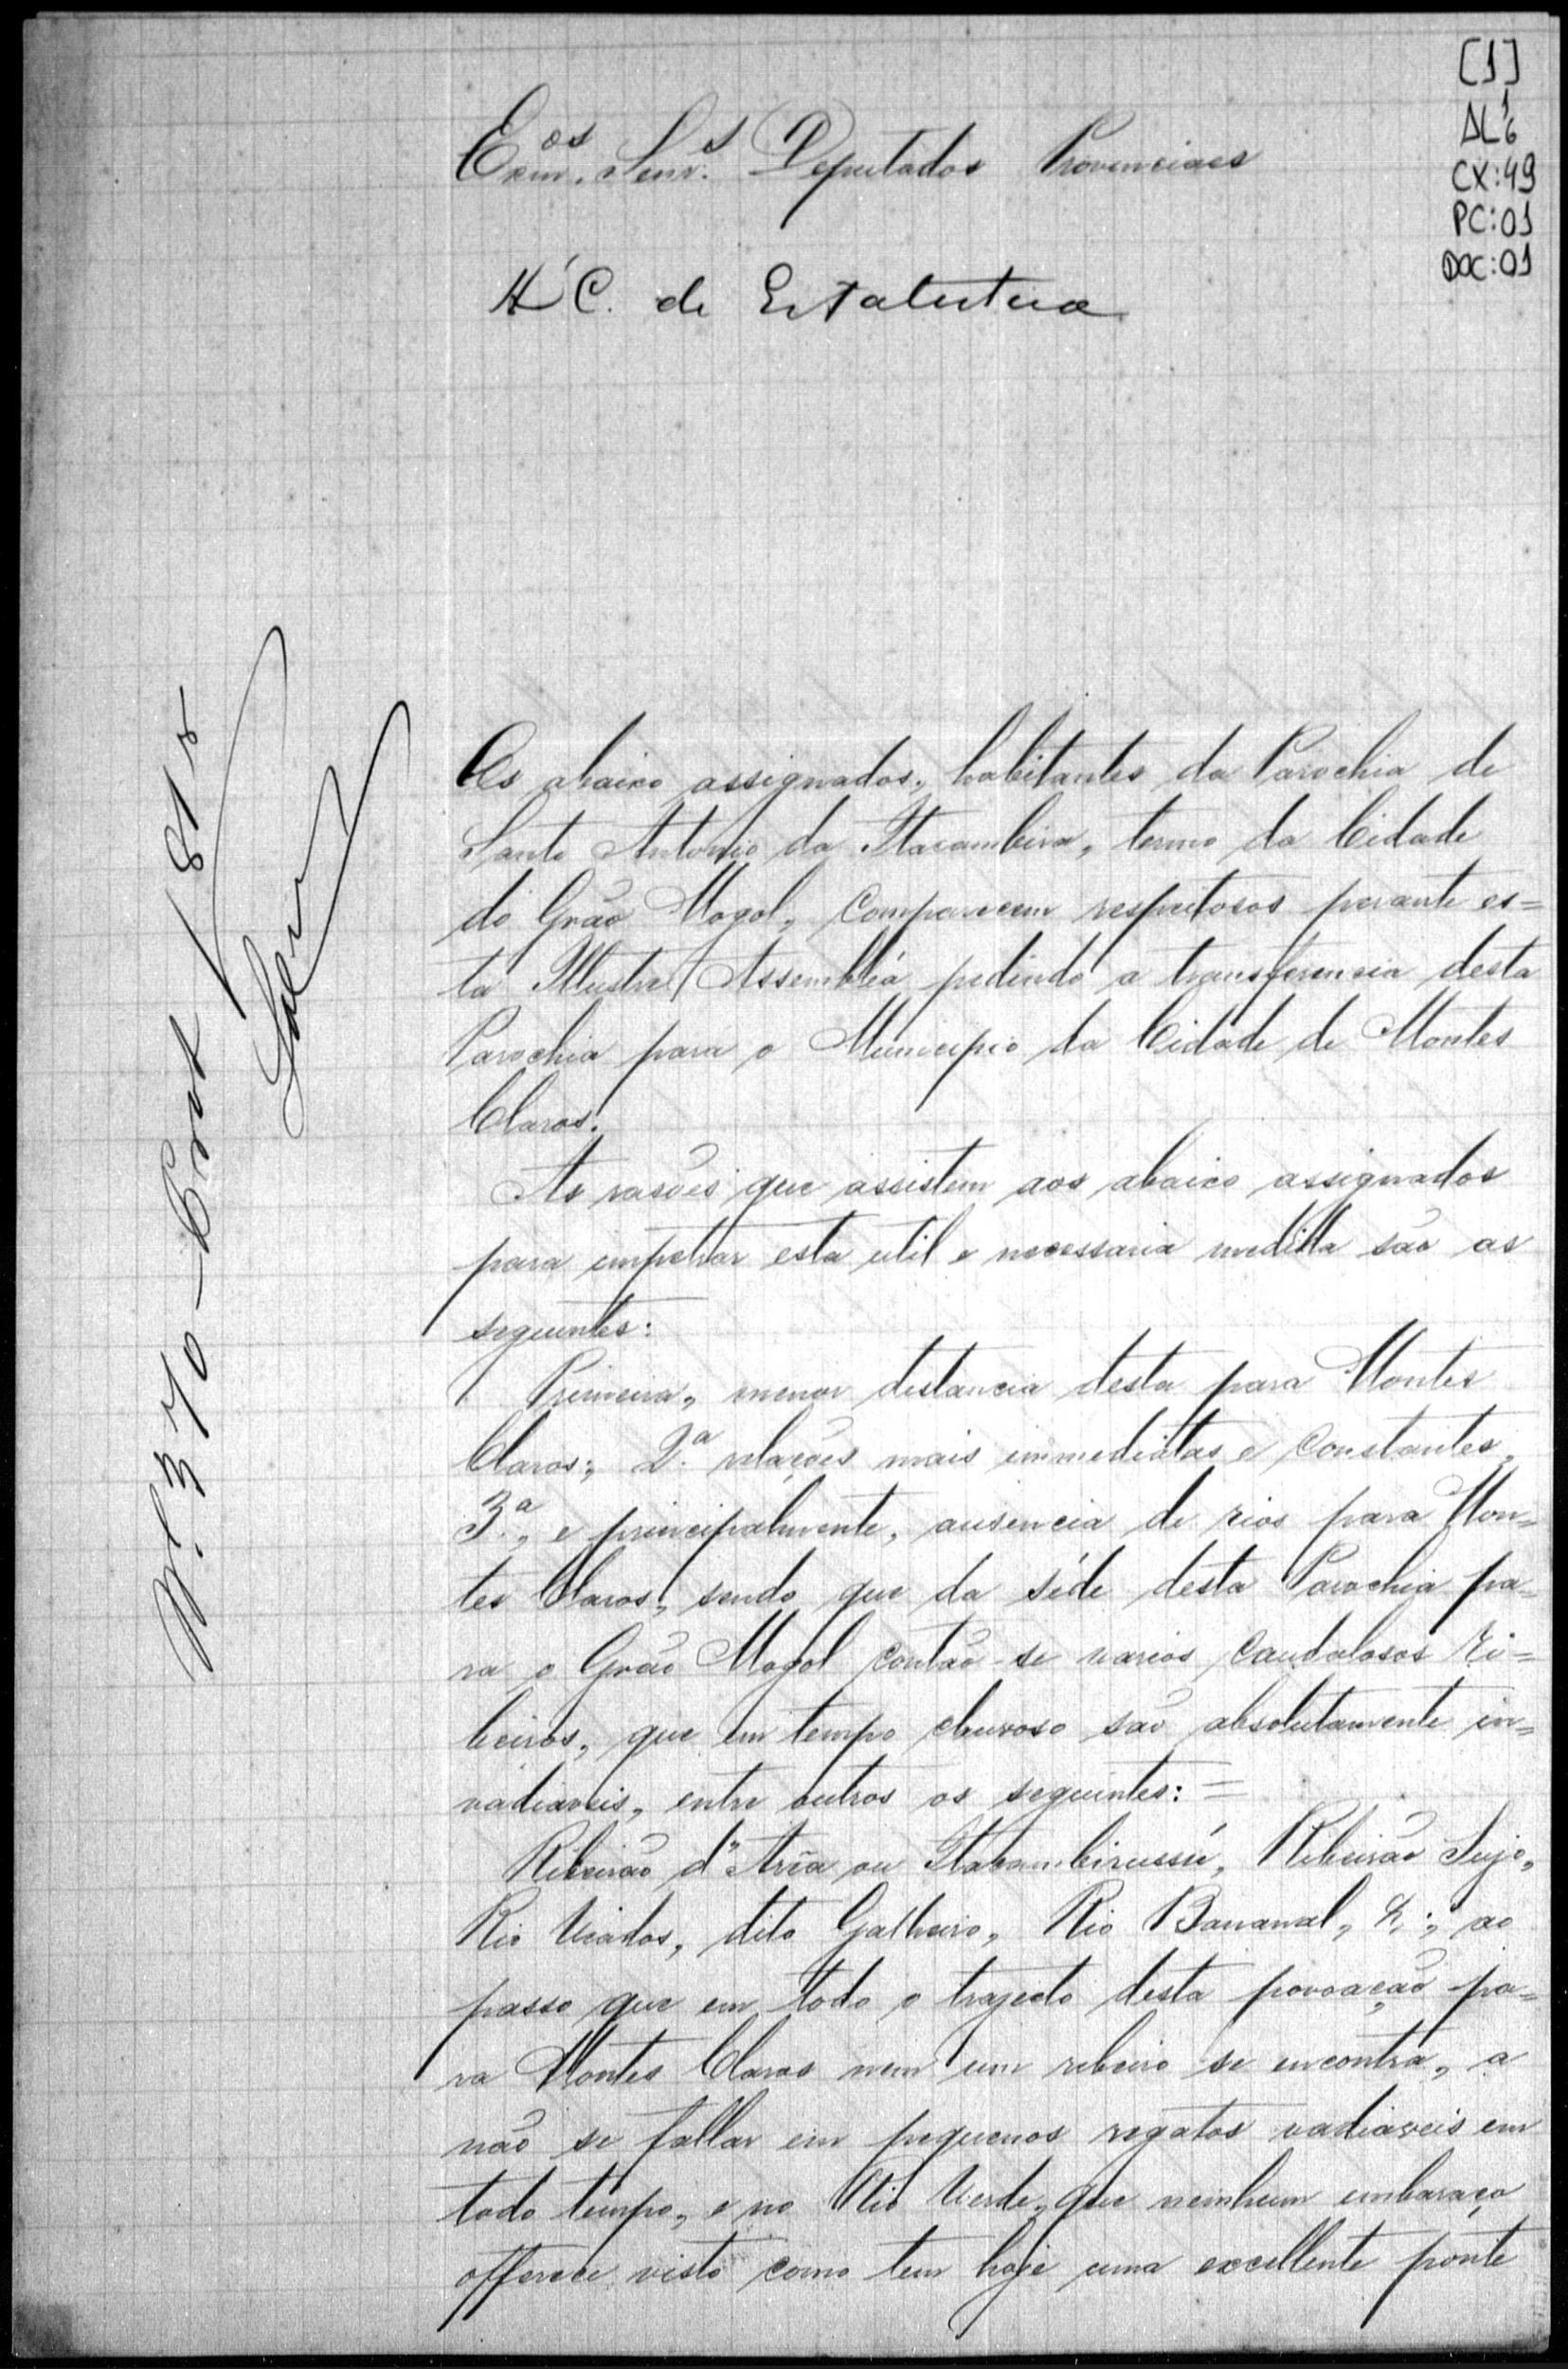 [1]
AL1
6
CX:49
PC:01
DOC:01
Exm.os Senr.s Deputados Provinciaes
Á C. de Estatistica
Os abaixo assignados, habitantes da Parochia de
Santo Antonio da Itacambira, termo da Cidade
do Grão Mogol, comparecem respeitosos perante es=
ta Illustre Assembléa pedindo a transferencia desta
Parochia para o Municipio da Cidade de Montes
Claros.
As rasões que assistem aos abaixo assignados
para impetrar esta util e necessaria medida são as
seguintes:
Primeira, menor distancia desta para Montes
Claros; 2.ª relações mais immediatas e constantes,
3.ª, e principalmente, ausencia de rios para Mon=
tes Claros, sendo que da séde desta Parochia pa=
ra o Grão Mogol contão-se varios caudalosos ri=
beiros, que em tempo chuvoso são absolutamente in=
vadiaveis, entre outros os seguintes: =
Ribeirão d'Arêa ou Itacambirussú, Ribeirão Sujo,
Rio Viados, dito Galheiro, Rio Bananal, &; ao
passo que em todo o trajecto desta povoação pa=
ra Montes Claros nem um ribeiro se encontra, a
não se fallar em pequenos regatos vadiaveis em
todo tempo, e no Rio Verde, que nenhum embaraço
offerece visto como tem hoje uma excellente ponte
N.º 370 -